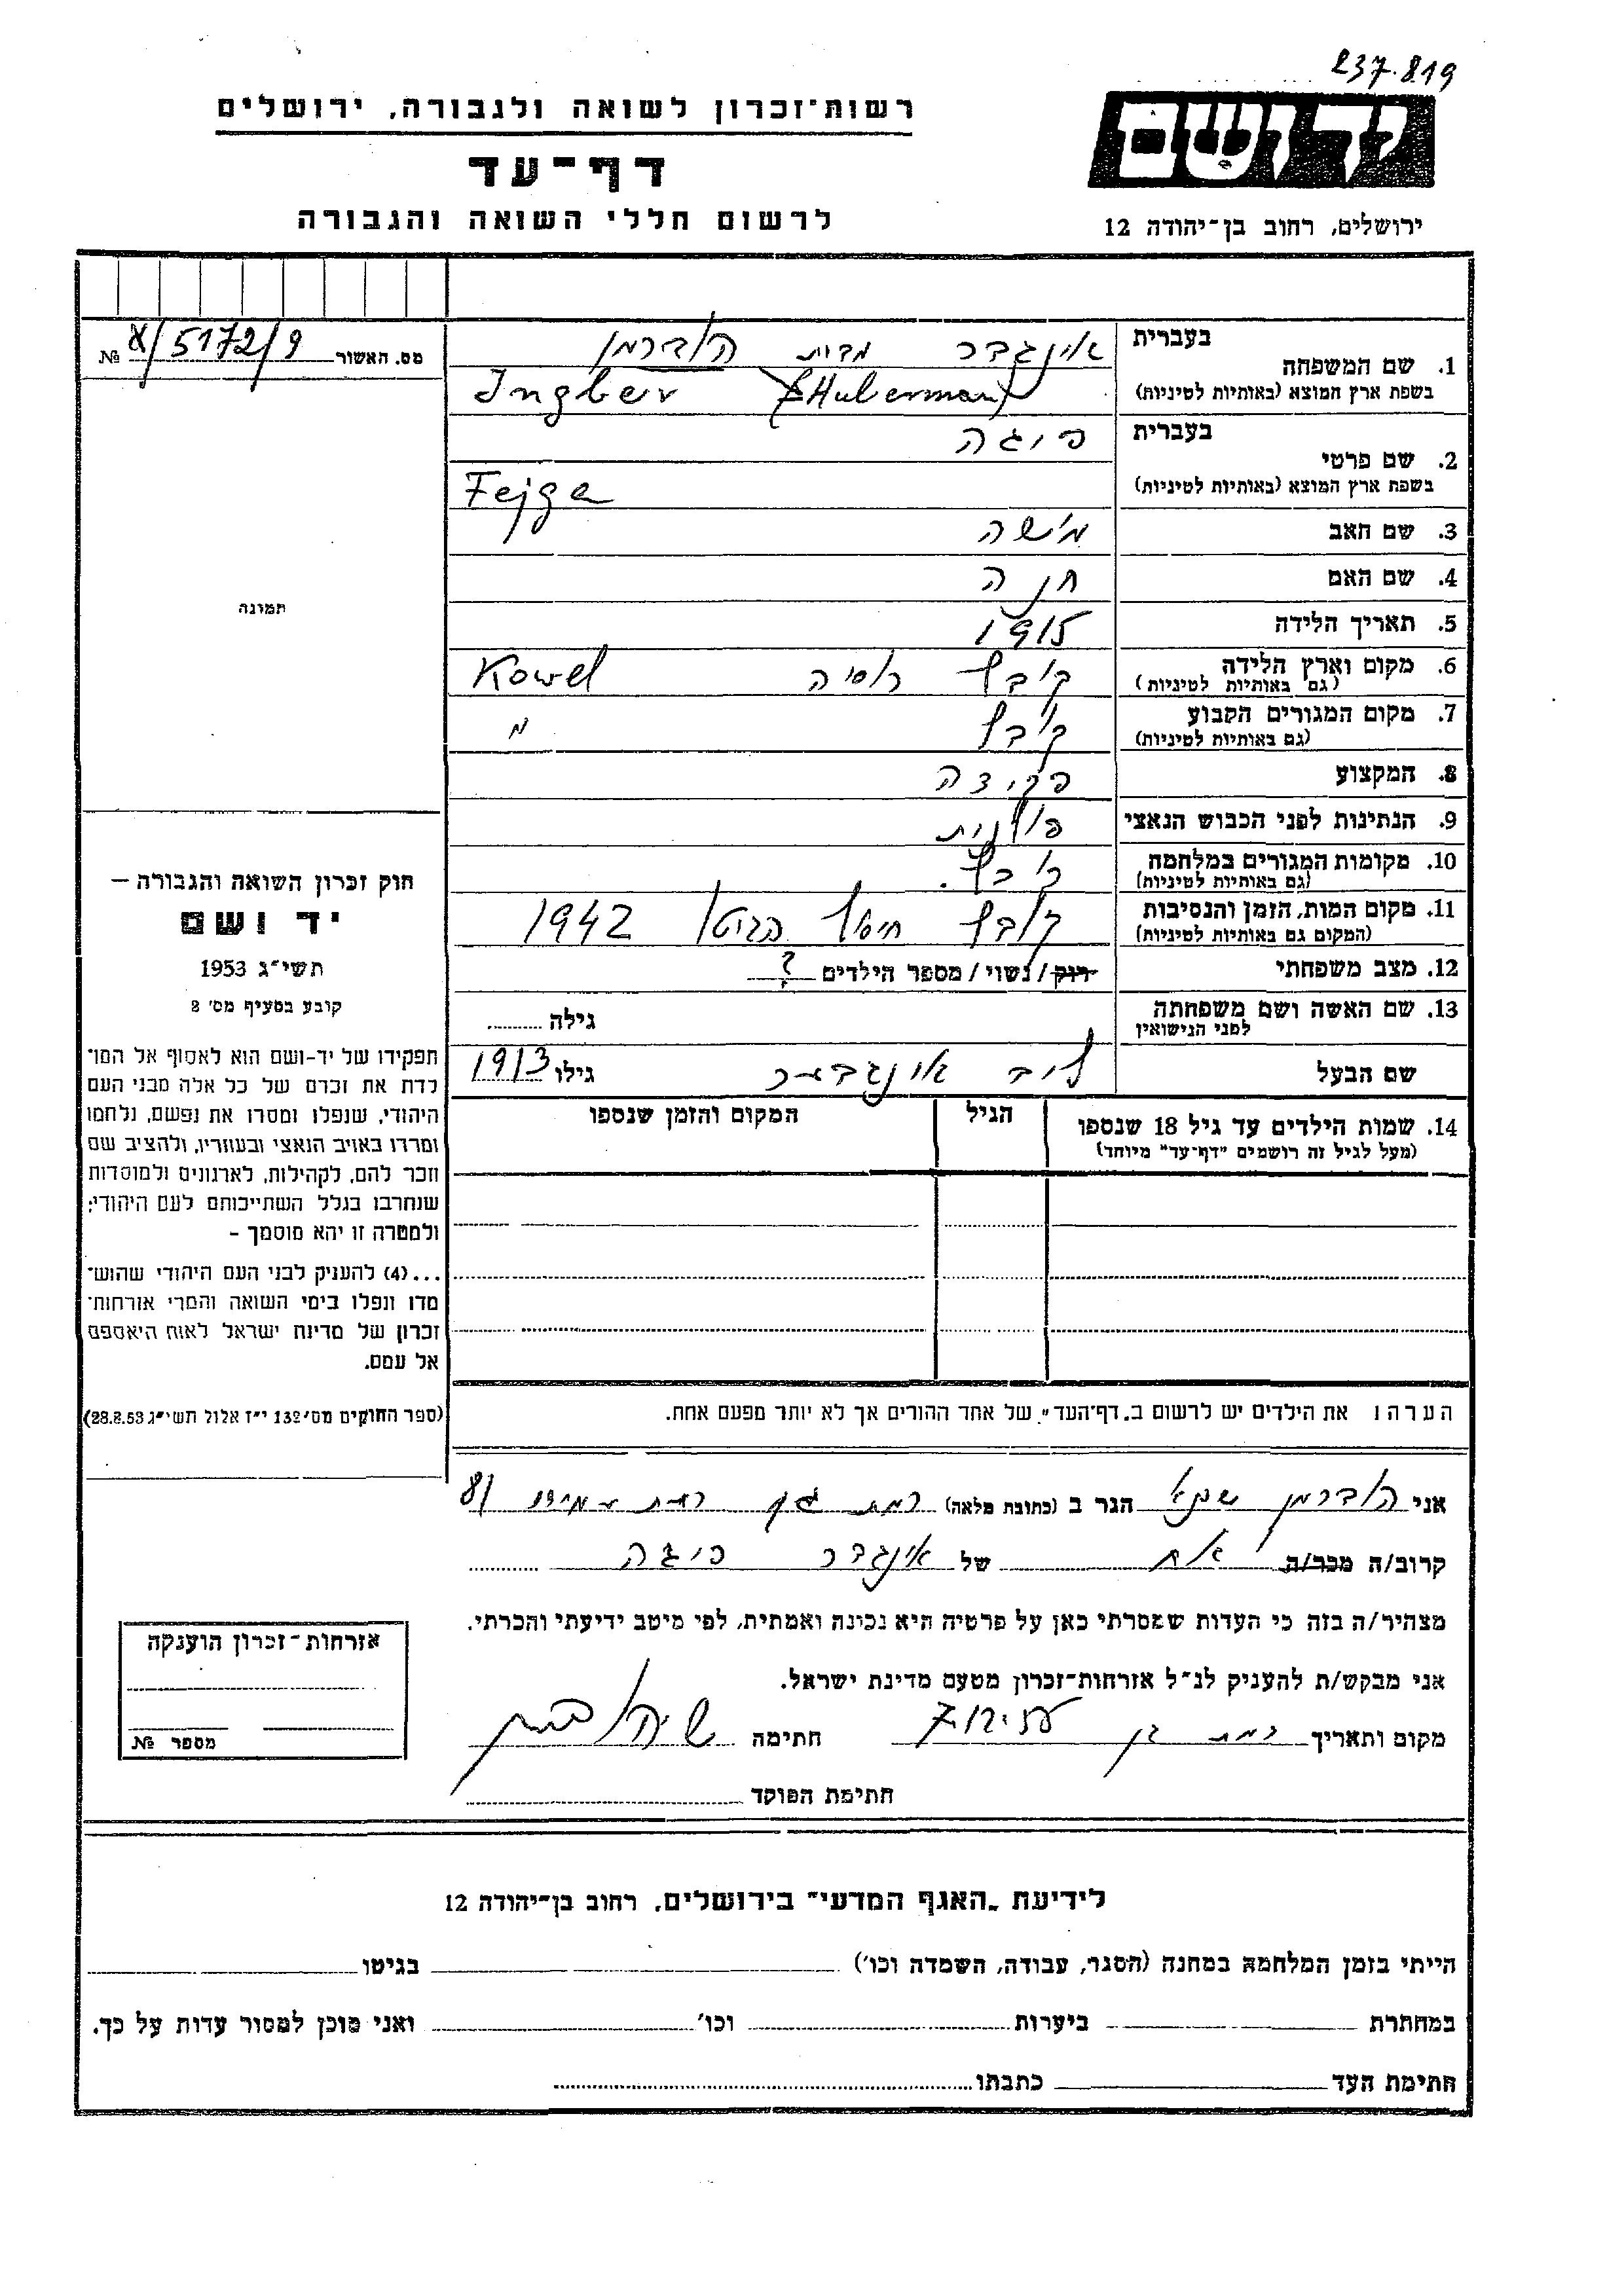 237.819
רשות־זכרון לשואה ולגבורה, ירושלים
דף־עד
לרשום חללי השואה והגבורה
יד ושם
ירושלים, רחוב בן־יהודה 12
מס. האשור № א/5172/9
1. שם המשפחה
בעברית אינגבר הוברמן
בשפת ארץ המוצא (באותיות לטיניות) Ingber (Huberman)
2. שם פרטי
בעברית פיגה
בשפת ארץ המוצא (באותיות לטיניות) Fejga
3. שם האב משה
4. שם האם חנה
5. תאריך הלידה 1915
6. מקום וארץ הלידה קובל רוסיה Kowel
(גם באותיות לטיניות)
7. מקום המגורים הקבוע קובל "
(גם באותיות לטיניות)
8. המקצוע פקידה
9. הנתינות לפני הכבוש הנאצי פולנית
10. מקומות המגורים במלחמה קובל.
(גם באותיות לטיניות)
11. מקום המות, הזמן והנסיבות קובל חיסול הגיטו 1942
(המקום גם באותיות לטיניות)
12. מצב משפחתי רווק / נשוי / מספר הילדים ?
13. שם האשה ושם משפחתה
לפני הנישואין
גילה
שם הבעל לייב אינגבר גילו 1913
14. שמות הילדים עד גיל 18 שנספו
(מעל לגיל זה רושמים "דף־עד" מיוחד)
הגיל
המקום והזמן שנספו
הערה: את הילדים יש לרשום ב„דף־העד" של אחד ההורים אך לא יותר מפעם אחת.
תמונה
חוק זכרון השואה והגבורה —
יד ושם
תשי"ג 1953
קובע בסעיף מס' 2
תפקידו של יד־ושם הוא לאסוף אל המו־
לדת את זכרם של כל אלה מבני העם
היהודי, שנפלו ומסרו את נפשם, נלחמו
ומרדו באויב הנאצי ובעוזריו, ולהציב שם
וזכר להם, לקהילות, לארגונים ולמוסדות
שנחרבו בגלל השתייכותם לעם היהודי;
ולמטרה זו יהא מוסמך -
...(4) להעניק לבני העם היהודי שהוש־
מדו ונפלו בימי השואה והמרי אזרחות־
זכרון של מדינת ישראל לאות היאספם
אל עמם.
(ספר החוקים מס' 132 י"ז אלול תשי"ג 28.8.53)
אני הוברמן הגר ב (כתובת מלאה) רמת גן רמת עמידר 81
קרוב/ה מכר/ה אח של אינגבר פיגה
מצהיר/ה בזה כי העדות שמסרתי כאן על פרטיה היא נכונה ואמתית, לפי מיטב ידיעתי והכרתי.
אני מבקש/ת להעניק לנ"ל אזרחות־זכרון מטעם מדינת ישראל.
מקום ותאריך רמת גן חתימה
חתימת הפוקד
אזרחות־זכרון הוענקה
מספר №
לידיעת „האגף המדעי" בירושלים, רחוב בן־יהודה 12
הייתי בזמן המלחמה במחנה (הסגר, עבודה, השמדה וכו') בגיטו
במחתרת ביערות וכו' ואני מוכן למסור עדות על כך.
חתימת העד כתבתו